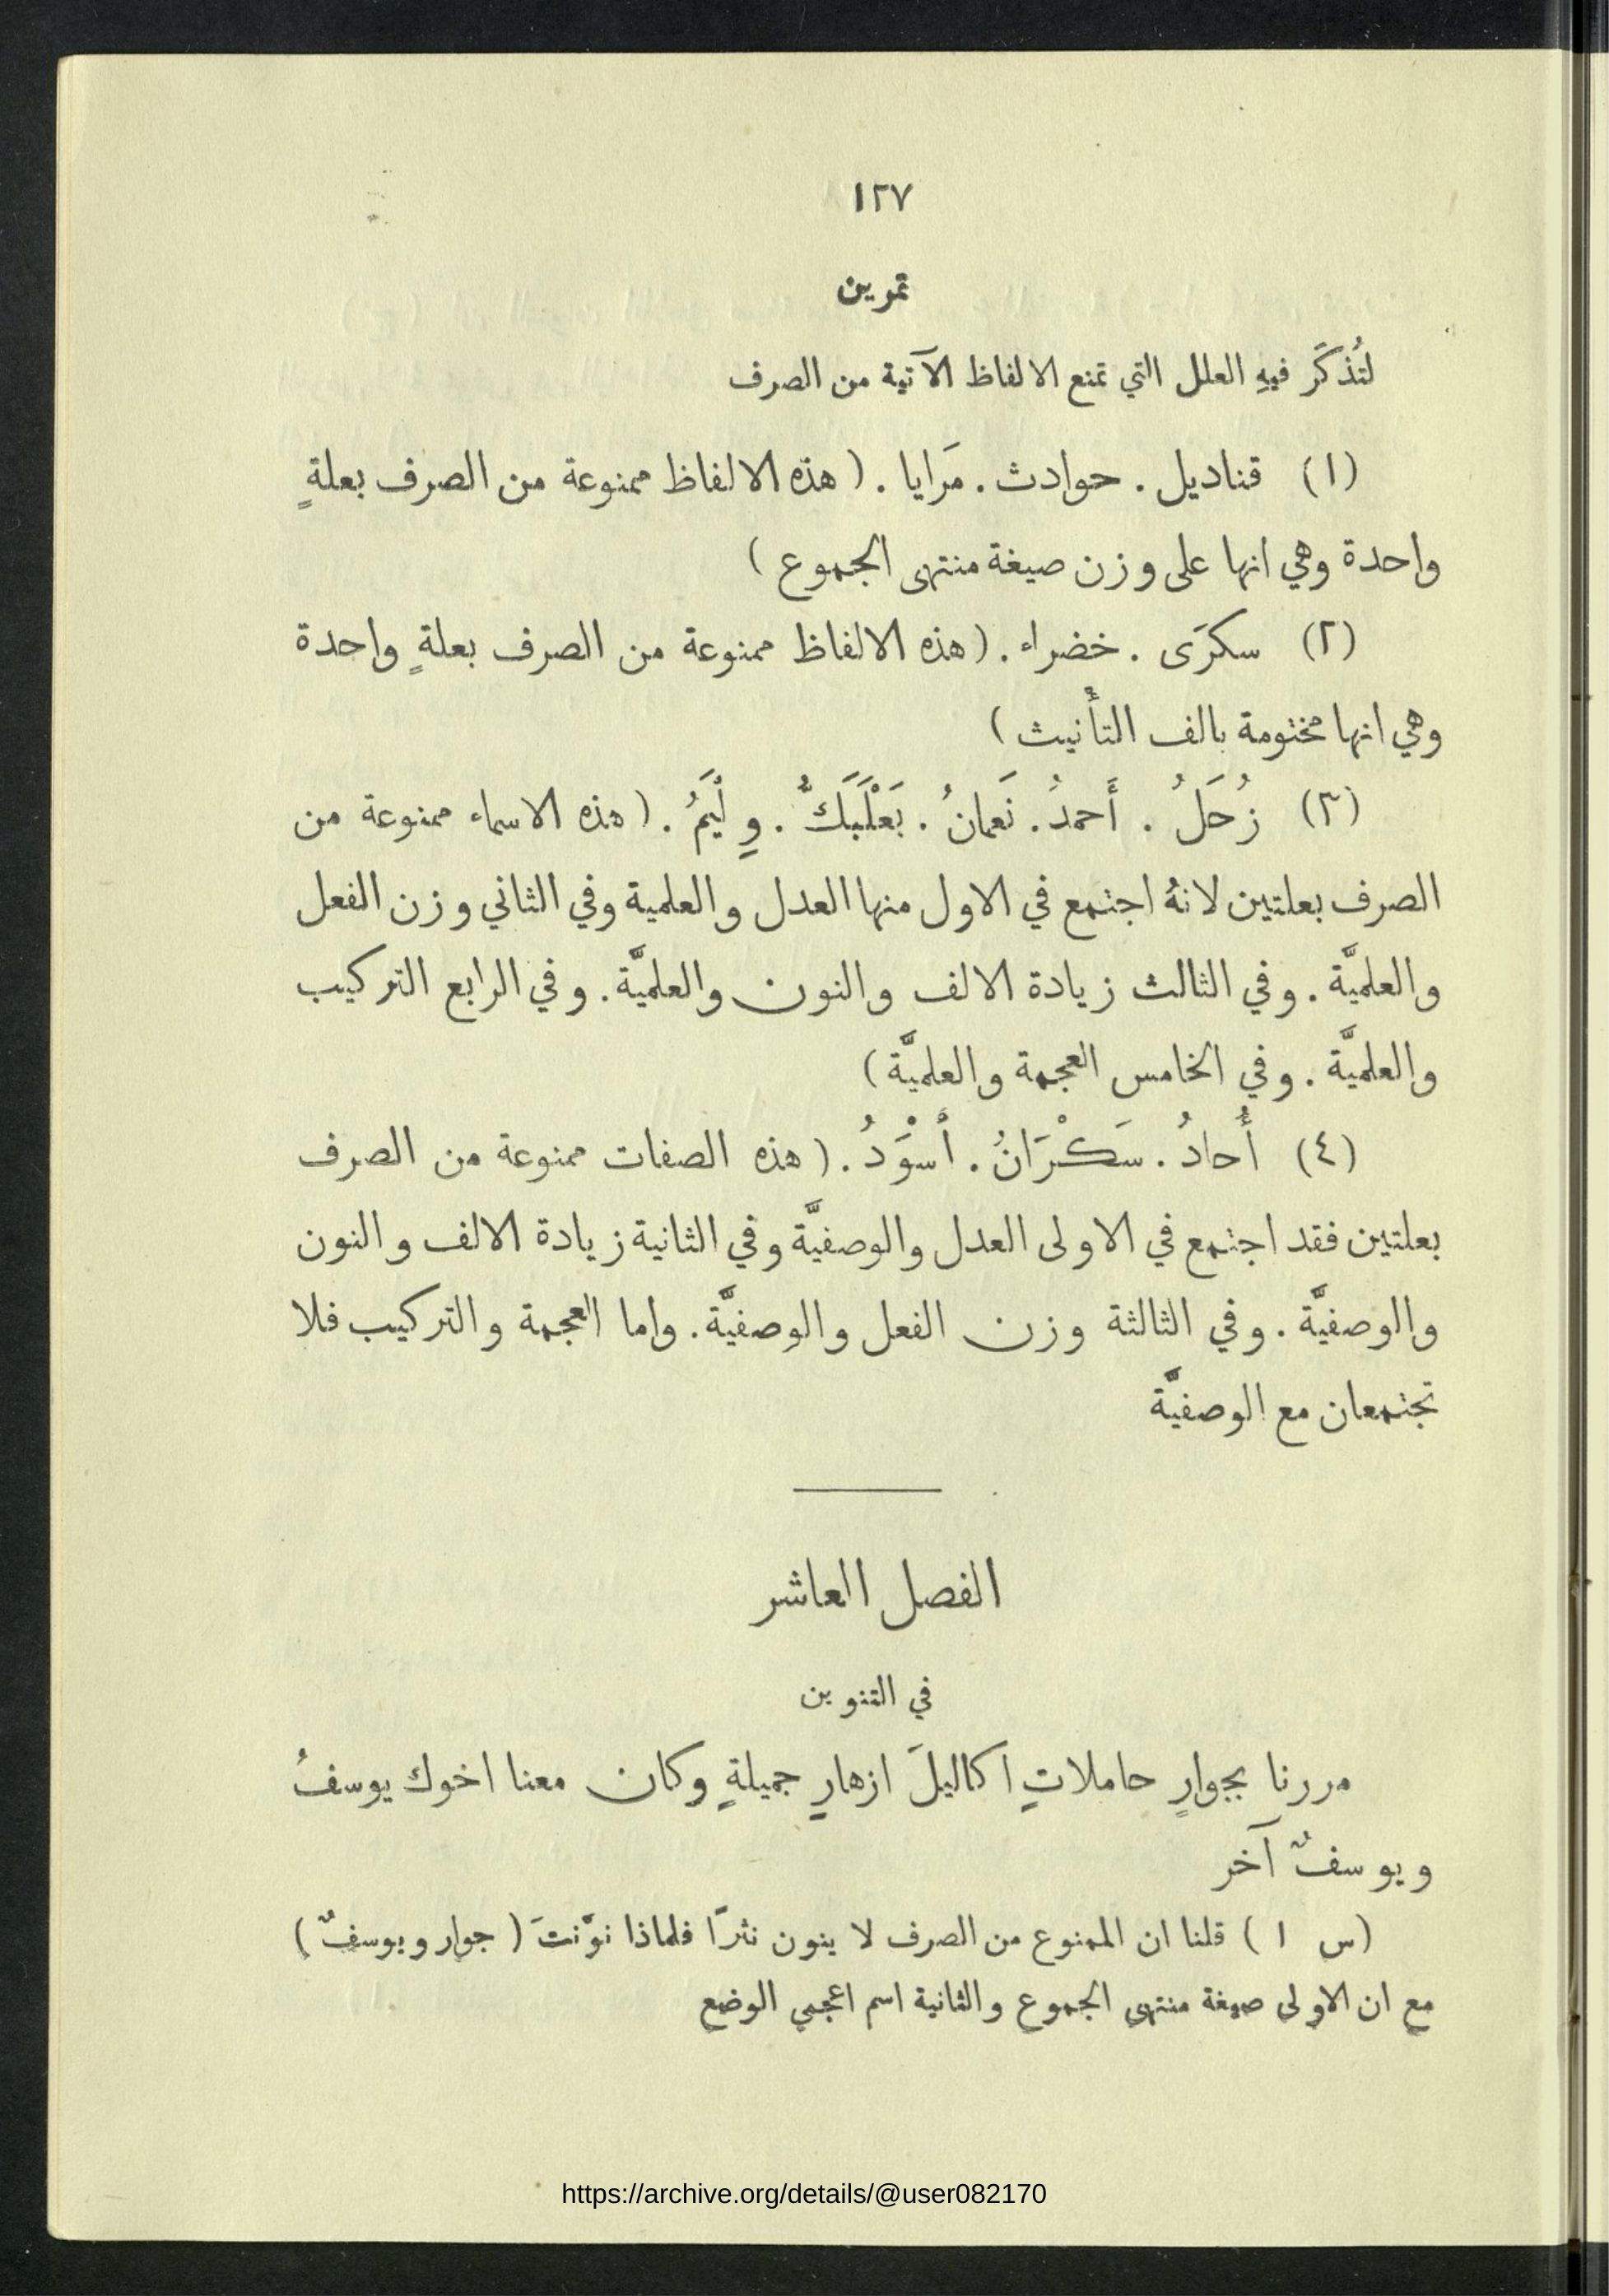 ١٢٧
تمرين
لتُذكَر فيهِ العلل التي تمنع الالفاظ الآتية من الصرف
(١) قناديل . حوادث . مَرايا . ( هذه الالفاظ ممنوعة من الصرف بعلةٍ
واحدة وهي انها على وزن صيغة منتهى الجموع )
(٢) سكرَى . خضراء . ( هذه الالفاظ ممنوعة من الصرف بعلةٍ واحدة
وهي انها مختومة بالف التأنيث )
(٣) زُحَلُ . أَحمدُ . نَعمانُ . بَعْلَبَكُّ . وِلْيَمُ . ( هذه الاسماء ممنوعة من
الصرف بعلتين لانهُ اجتمع في الاول منها العدل والعلمية وفي الثاني وزن الفعل
والعلميَّة . وفي الثالث زيادة الالف والنون والعلميَّة . وفي الرابع التركيب
والعلميَّة . وفي الخامس العجمة والعلميَّة )
(٤) أُحادُ . سَكْرَانُ . أَسْوَدُ . ( هذه الصفات ممنوعة من الصرف
بعلتين فقد اجتمع في الاولى العدل والوصفيَّة وفي الثانية زيادة الالف والنون
والوصفيَّة . وفي الثالثة وزن الفعل والوصفيَّة . واما العجمة والتركيب فلا
تجتمعان مع الوصفيَّة
الفصل العاشر
في التنوين
مررنا بجوارٍ حاملاتٍ اكاليلَ ازهارٍ جميلةٍ وكان معنا اخوك يوسفُ
ويوسفٌ آخر
(س ١ ) قلنا ان الممنوع من الصرف لا ينون نثرًا فلماذا نوَّنتَ ( جوارٍ ويوسفٌ )
مع ان الاولى صيغة منتهى الجموع والثانية اسم اعجمي الوضع
https://archive.org/details/@user082170